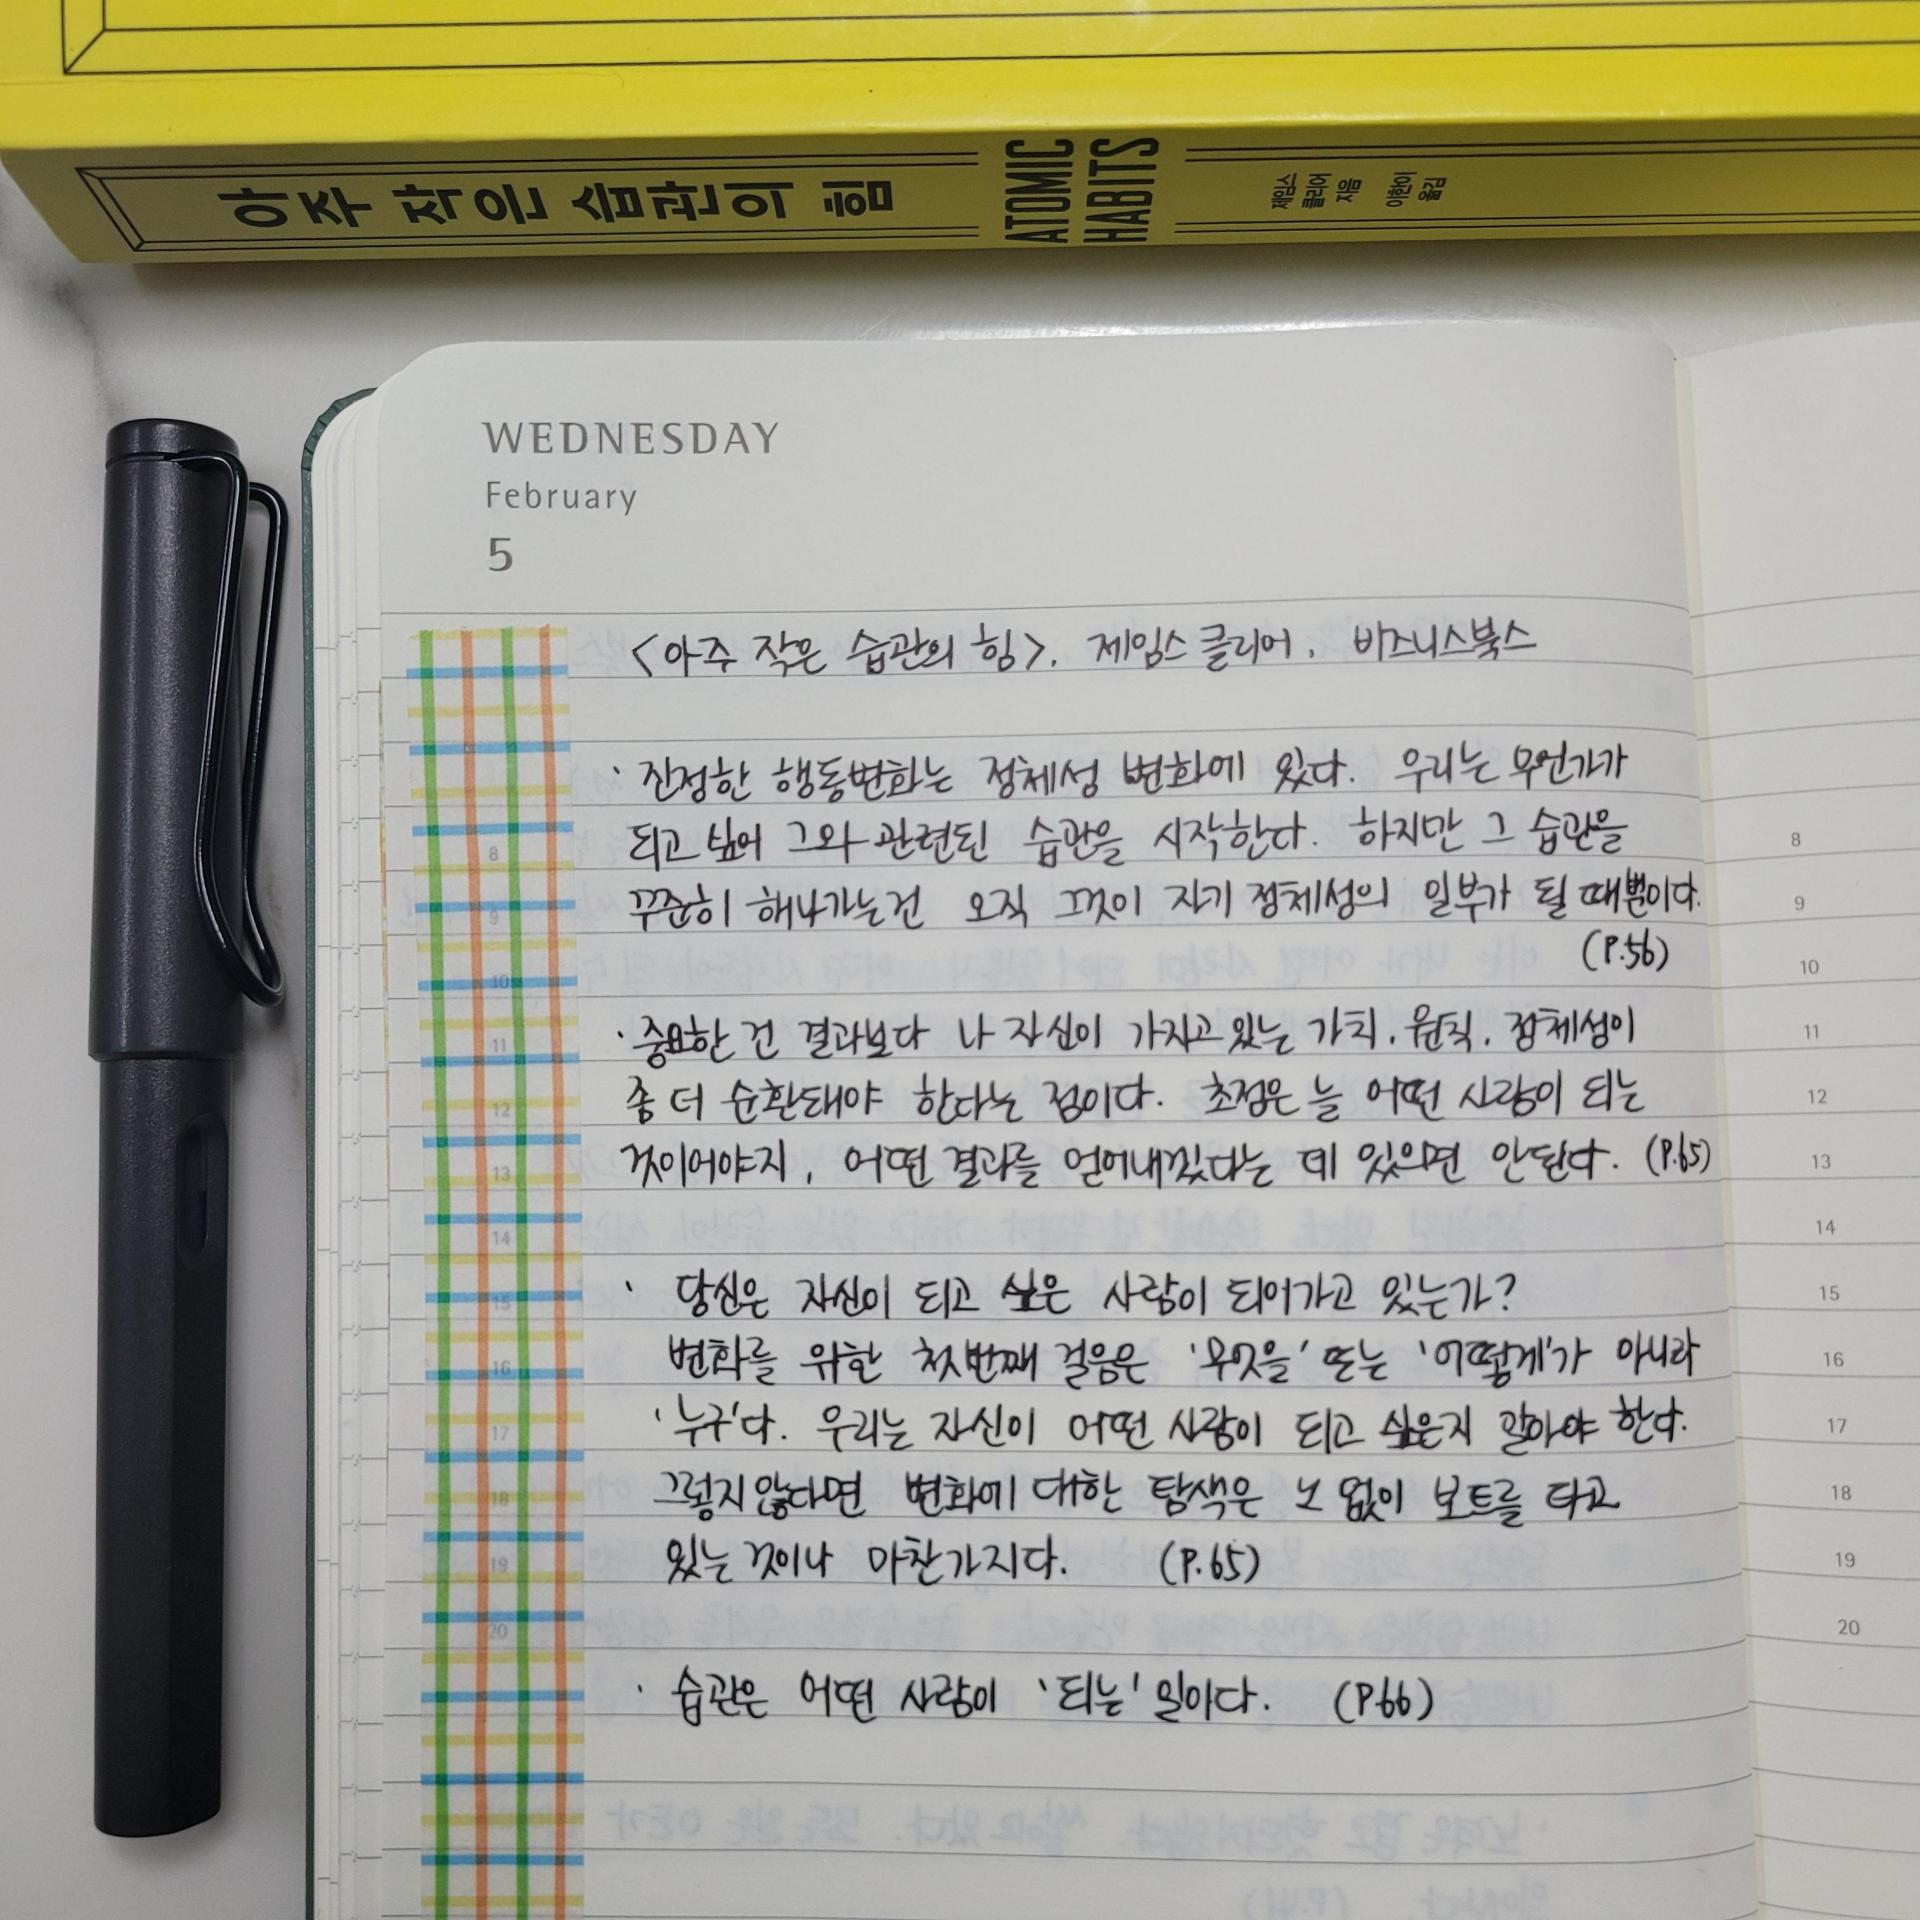 아주 작은 습관의 힘
ATOMIC
HABITS
제임스
클리어
지음
이한이
옮김
WEDNESDAY
February
5
<아주 작은 습관의 힘>. 제임스 클리어. 비즈니스북스
· 진정한 행동변화는 정체성 변화에 있다. 우리는 무언가가
되고 싶어 그와 관련된 습관을 시작한다. 하지만 그 습관을
꾸준히 해나가는건 오직 그것이 자기 정체성의 일부가 될 때뿐이다.
(P.56)
· 중요한 건 결과보다 나 자신이 가지고 있는 가치. 원칙. 정체성이
좀 더 순환돼야 한다는 점이다. 초점은 늘 어떤 사람이 되는
것이어야지, 어떤 결과를 얻어내겠다는 데 있으면 안된다. (P.65)
· 당신은 자신이 되고 싶은 사람이 되어가고 있는가?
변화를 위한 첫번째 걸음은 '무엇을' 또는 '어떻게'가 아니라
'누구'다. 우리는 자신이 어떤 사람이 되고 싶은지 알아야 한다.
그렇지 않다면 변화에 대한 탐색은 노 없이 보트를 타고
있는 것이나 마찬가지다. (P.65)
· 습관은 어떤 사람이 '되는' 일이다. (P.66)
8
9
10
11
12
13
14
15
16
17
18
19
20
8
9
10
11
12
13
14
15
16
17
18
19
20